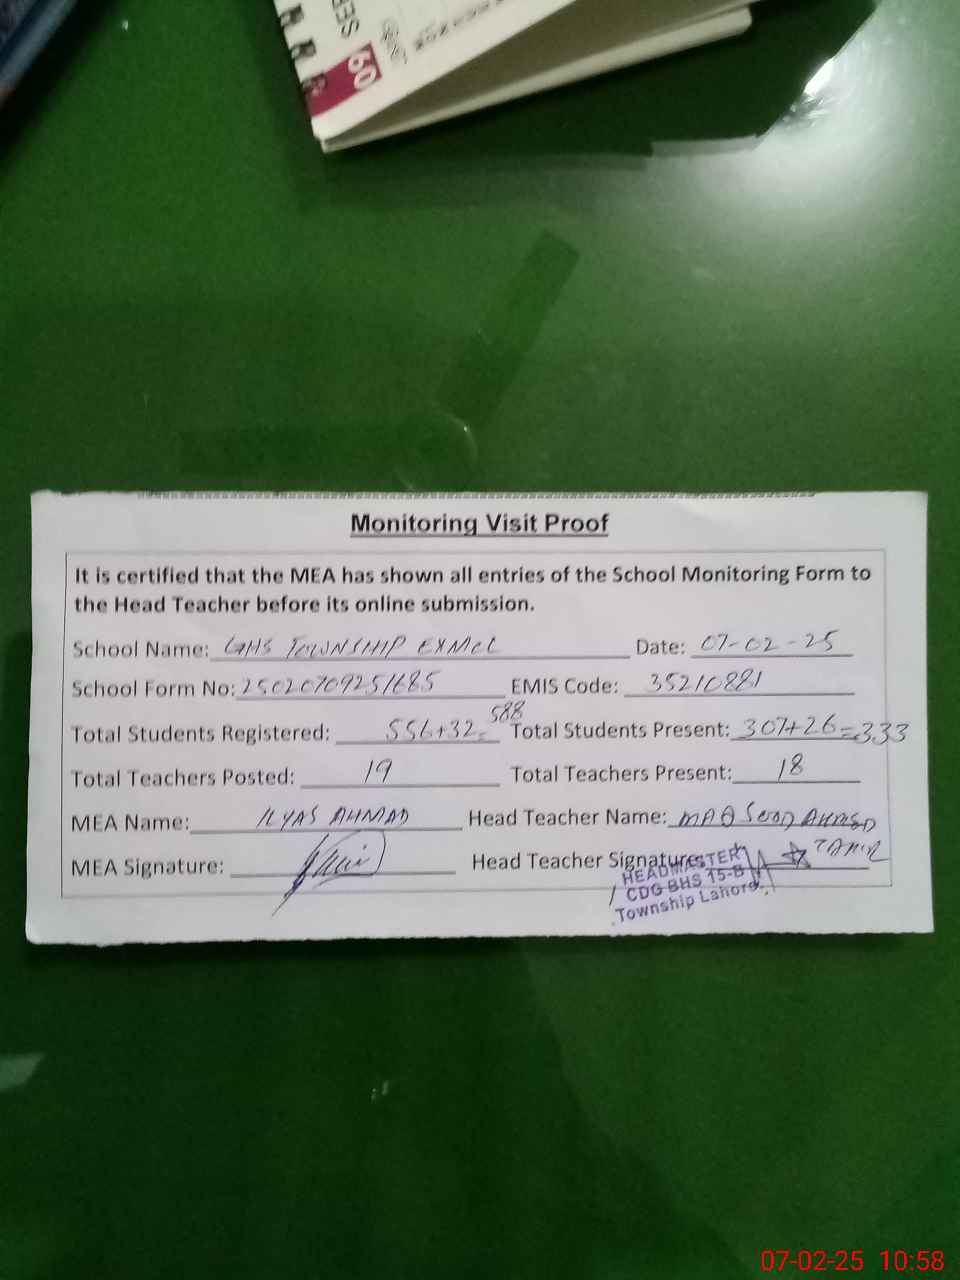 SEE
60
Monitoring Visit Proof
It is certified that the MEA has shown all entries of the School Monitoring Form to
the Head Teacher before its online submission.
School Name: GHS TOWNSHIP EXMCL Date: 07-02-25
School Form No: 25020709251685 EMIS Code: 35210881
Total Students Registered: 556+32= 588 Total Students Present: 307+26=333
Total Teachers Posted: 19 Total Teachers Present: 18
MEA Name: ILYAS AHMAD Head Teacher Name: MAQSOOD AHMED
ZAMIR
MEA Signature: Head Teacher Signature:
HEADMASTER
CDG BHS 15-B
Township Lahore.
07-02-25 10:58